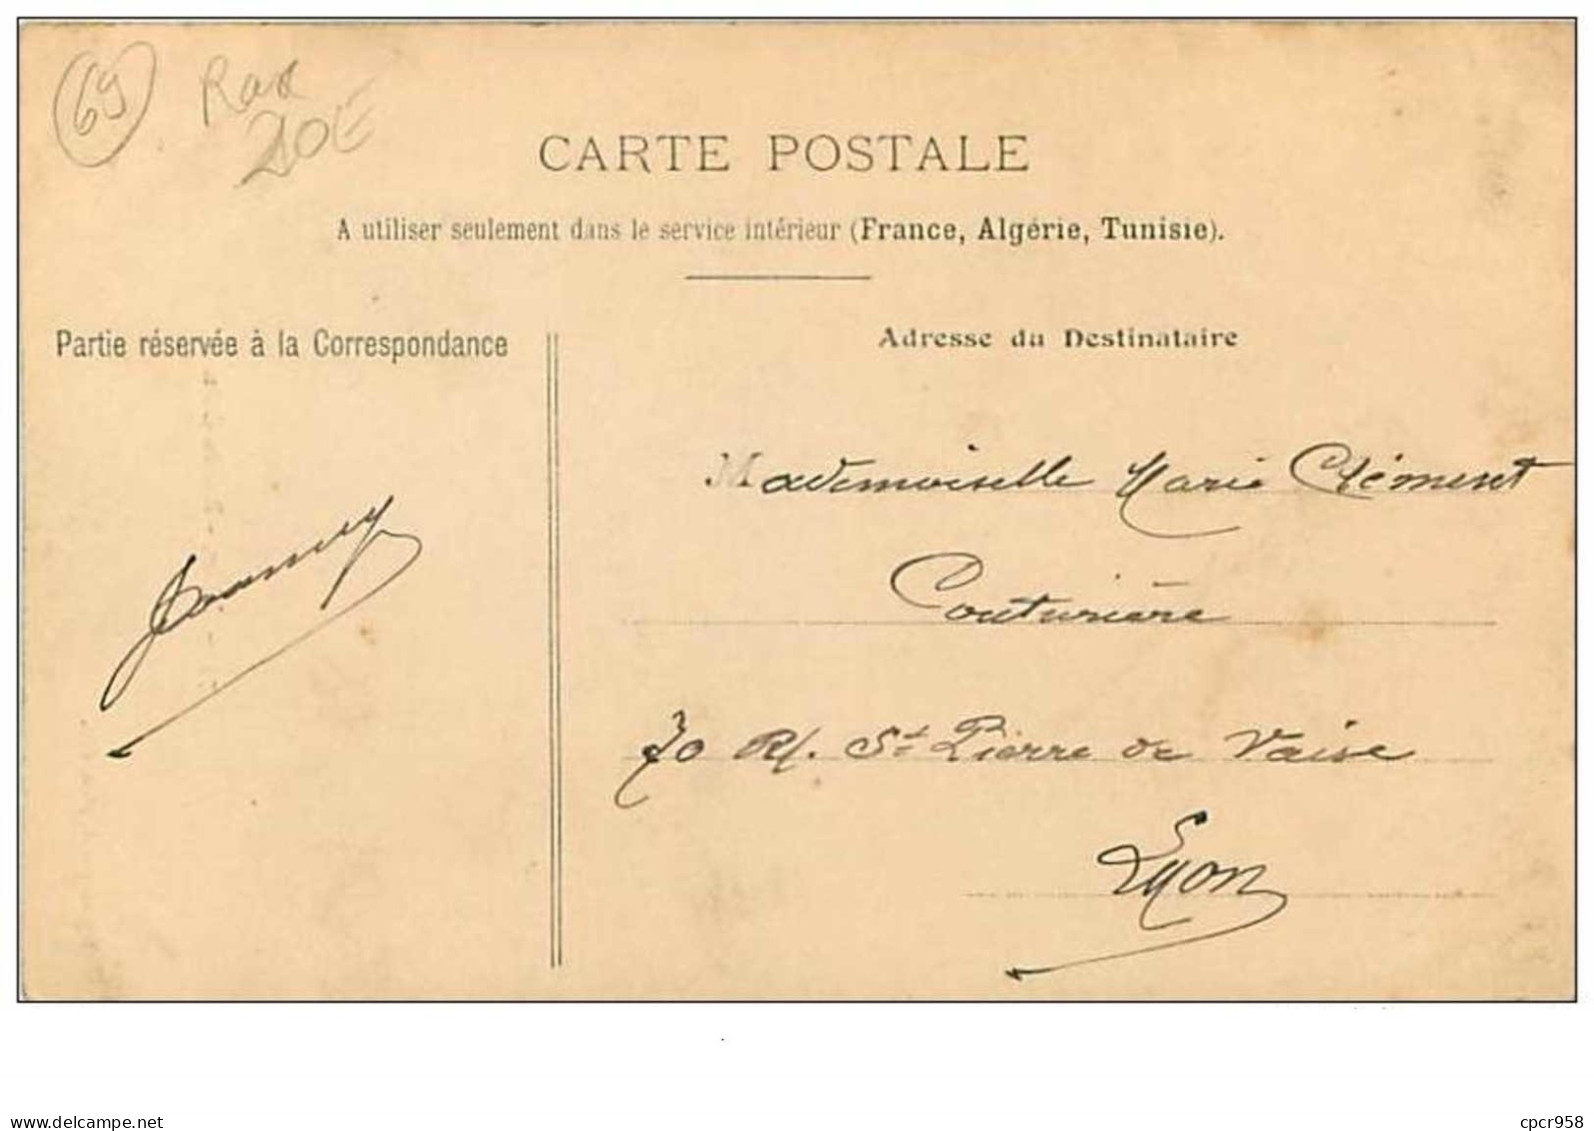 69
Rare
20E
CARTE POSTALE
A utiliser seulement dans le service intérieur (France, Algérie, Tunisie).
Partie réservée à la Correspondance
Adresse du Destinataire
Mademoiselle Marie Clément
Couturière
70 R/. St Pierre de Vaise
Lyon
https://www.delcampe.net
cpcr958